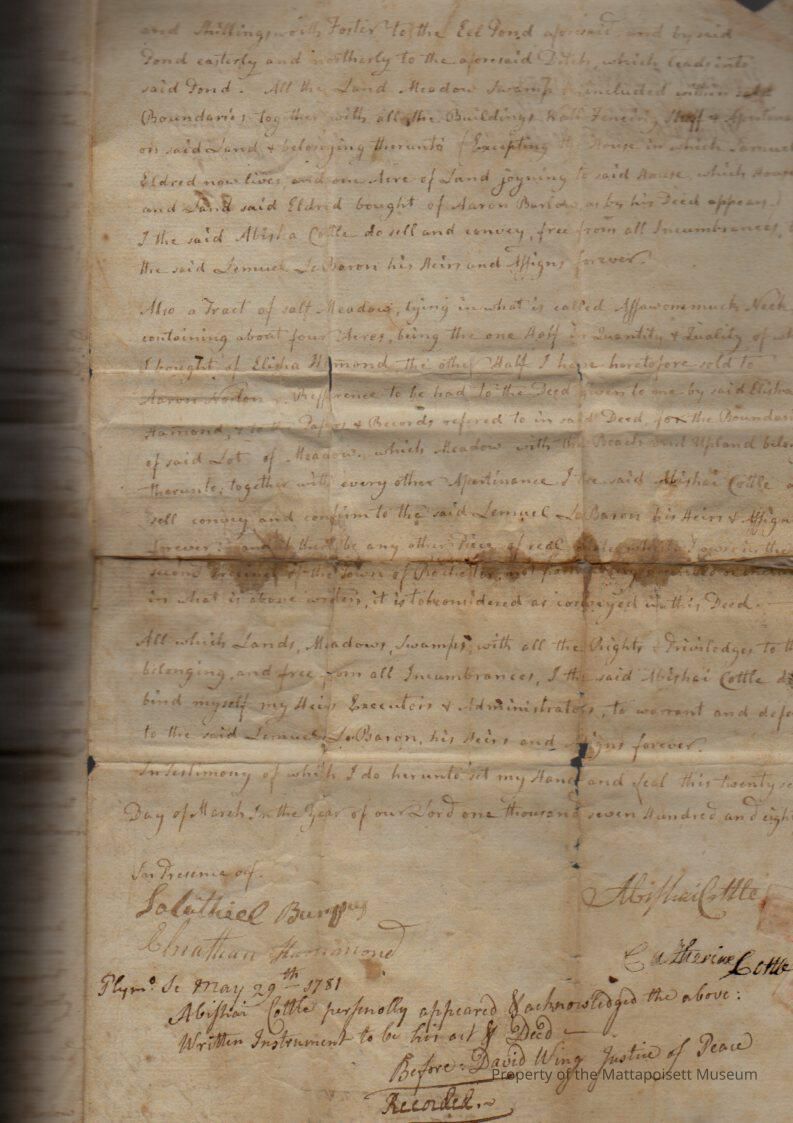 and Shillingsworth Foster to the Eel Pond aforesaid, and by said
Pond easterly and northerly to the aforesaid Ditch, which leads into
said Pond. All the Land Meadow Swamp included within
Boundaries together with all the Buildings Fencing Stuff &
on said Land & belonging thereunto (Excepting the House in which Samuel
Eldred now lives, and one Acre of Land joyning to said House, which House
and Land said Eldred bought of Aaron Barlow, as by his Deed appears)
I the said Abisha Cottle do sell and convey, free from all Incumbrances,
the said Lemuel LeBaron his Heirs and Assigns forever.
Also a Tract of salt Meadow, lying in what is called Assawonemuck Neck
containing about four Acres, being the one Half in Quantity & Quality of
I bought of Elisha Hamond, the other Half I have heretofore sold to
Aaron Norton Refference to be had to the Deed given to me by said Elisha
Hamond, & to the Papers & Records refered to in said Deed, for the
of said Lot of Meadow, which Meadow with the Beach and Upland
thereunto, together with every other Apertinance I the said Abishai Cottle
sell convey and confirm to the said Lemuel LeBaron his Heirs & Assigns
forever: and if there be any other Piece of real in the
second Precinct of the Town of Rochester, not
in what is above written, it is to be considered as conveyed in this Deed.
All which Lands, Meadows, Swamps, with all the Rights & Priviledges to
belonging, and free from all Incumbrances, I the said Abishai Cottle do
bind myself my Heirs Executors & Administrators, to warrant and
to the said Lemuel LeBaron, his Heirs and Assigns forever.
In Testimony of which I do hereunto set my Hand and seal this
Day of March In the Year of our Lord one thousand seven Hundred and
In Presence of.
Salathiel Bumpus
Abishai Cottle
Elnathan Hammond
Catherine Cottle
Plymo. Sc May 29th 1781
Abishai Cottle personolly appeared & acknowledged the above:
Written Instrument to be his act & Deed
Before: David Wing Justice of Peace
Recorded.
Property of the Mattapoisett Museum